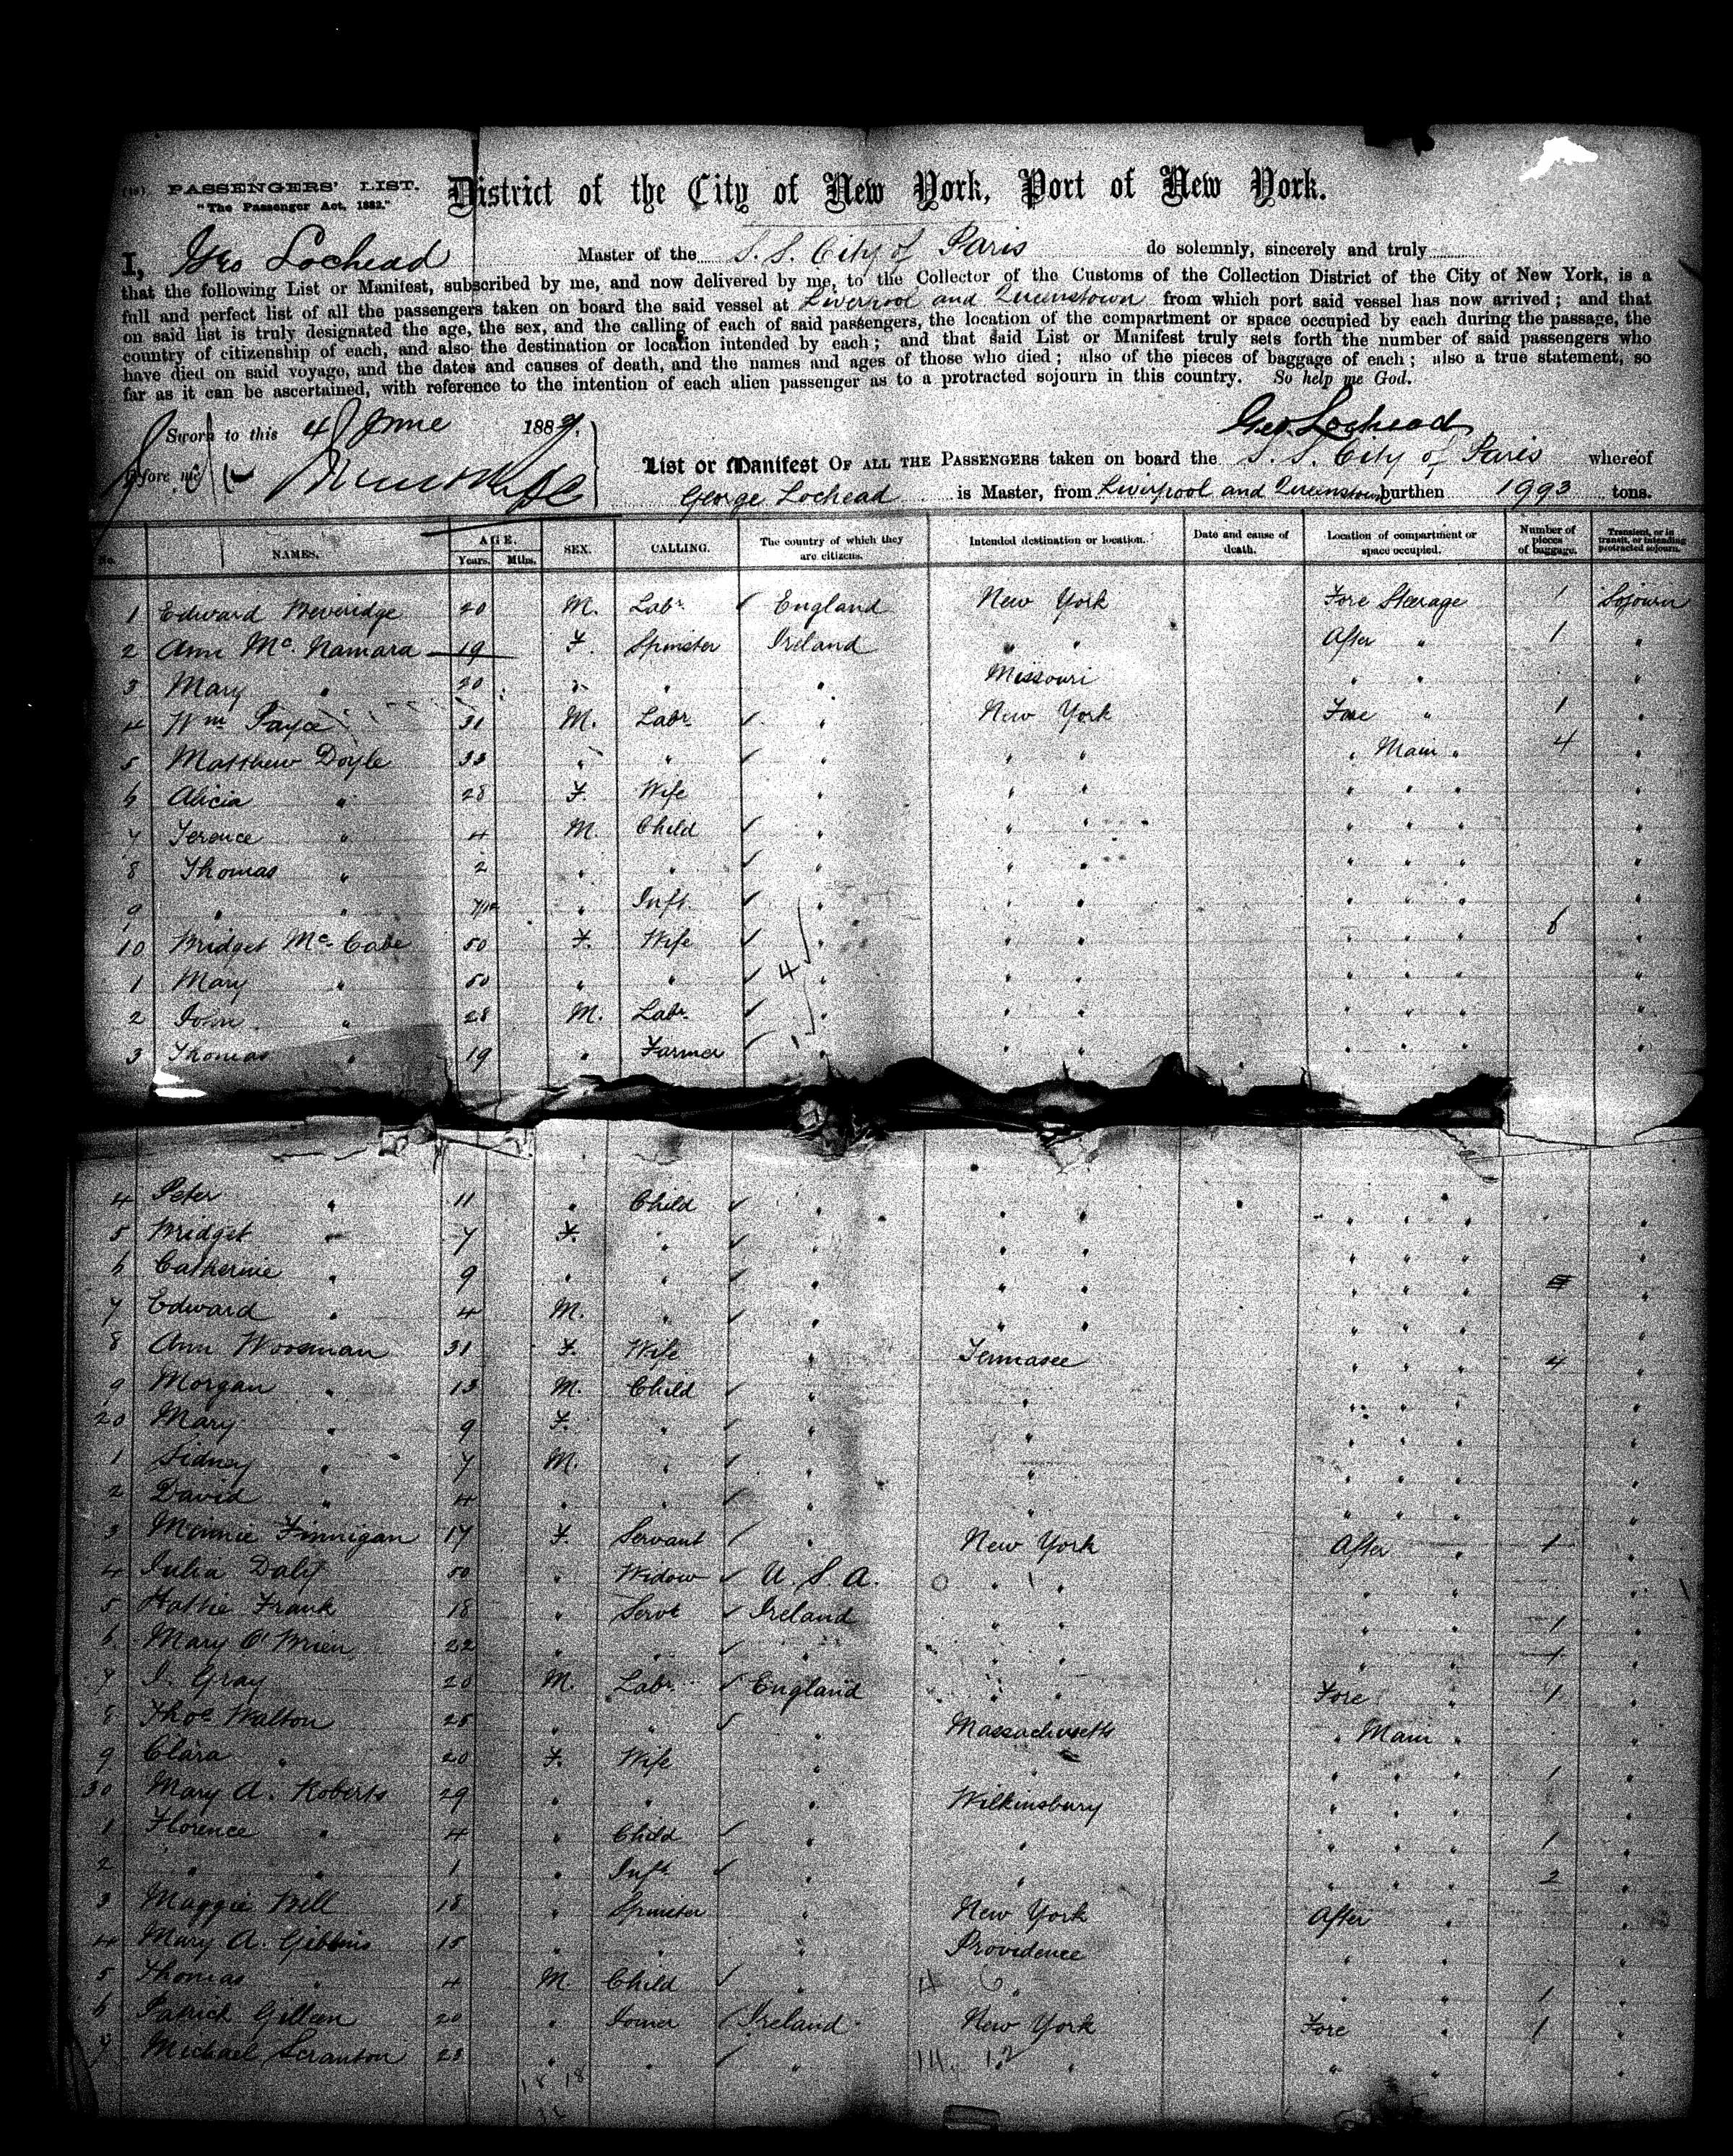 PASSENGERS' LIST.
"The Passenger Act, 1882."
District of the City of New York, Port of New York.
I, Geo Lochead Master of the S. S. City of Paris do solemnly, sincerely and truly
that the following List or Manifest, subscribed by me, and now delivered by me, to the Collector of the Customs of the Collection District of the City of New York, is a
full and perfect list of all the passengers taken on board the said vessel at Liverpool and Queenstown from which port said vessel has now arrived; and that
on said list is truly designated the age, the sex, and the calling of each of said passengers, the location of the compartment or space occupied by each during the passage, the
country of citizenship of each, and also the destination or location intended by each; and that said List or Manifest truly sets forth the number of said passengers who
have died on said voyage, and the dates and causes of death, and the names and ages of those who died; also of the pieces of baggage of each; also a true statement, so
far as it can be ascertained, with reference to the intention of each alien passenger as to a protracted sojourn in this country. So help me God.
Sworn to this 4 June 1889. Geo. Lochead
before me
List or Manifest OF ALL THE PASSENGERS taken on board the S. S. City of Paris whereof
George Lochead is Master, from Liverpool and Queenstown burthen 1993 tons.
No. NAMES. AGE. Years. Mths. SEX. CALLING. The country of which they are citizens. Intended destination or location. Date and cause of death. Location of compartment or space occupied. Number of pieces of baggage. Transient, or in transit, or intending protracted sojourn.
1 Edward Beveridge 20 M. Labr ✓ England New York Fore Steerage 1 Sojourn
2 Ann McNamara 19 F. Spinster Ireland " " After " 1 "
3 Mary " 20 " " " Missouri " " "
4 Wm Payce 31 M. Labr ✓ " New York Fore " 1 "
5 Matthew Doyle 33 " " ✓ " " " " Main " 4 "
6 Alicia " 28 F. Wife " " " " " " "
7 Terence " 4 M. Child ✓ " " " " " " "
8 Thomas " 2 " " ✓ " " " " " " "
9 " " 7/12 " Inft. ✓ " " " " " " "
10 Bridget McCabe 50 F. Wife ✓ " " " " " " 6 "
1 Mary " 50 " " ✓ 4 " " " " " "
2 John " 28 M. Labr ✓ " " " " " " "
3 Thomas " 19 " Farmer ✓ " " " " " " "
4 Peter " 11 " Child ✓ " " " " " " "
5 Bridget " 7 F. " ✓ " " " " " " "
6 Catherine " 9 " " ✓ " " " " " " "
7 Edward " 4 M. " ✓ " " " " " " "
8 Ann Woosman 31 F. Wife " Tennasee " " " 4 "
9 Morgan " 13 M. Child ✓ " " " " " "
20 Mary " 9 F. " ✓ " " " " " "
1 Sidney " 7 M. " ✓ " " " " " "
2 David " 4 " " ✓ " " " " " "
3 Minnie Finnigan 17 F. Servant ✓ " New York After " 1 "
4 Julia Daly 50 " Widow ✓ U. S. A. " " " " "
5 Hattie Frank 18 " Servt ✓ Ireland " " " " 1 "
6 Mary O'Brien 22 " " ✓ " " " " " 1 "
7 J. Gray 20 M. Labr ✓ England " " Fore " 1 "
8 Thos Walton 25 " " ✓ " Massachusetts " Main " "
9 Clara " 20 F. Wife " " " " " 1 "
30 Mary A. Roberts 29 " " " Wilkinsbury " " " "
1 Florence " 4 " Child ✓ " " " " " 1 "
2 " " 1 " Inft ✓ " " " " " 2 "
3 Maggie Bell 18 " Spinster " New York After " "
4 Mary A. Gibbins 15 " " " Providence " " "
5 Thomas " 4 M Child ✓ " " " " 1 "
6 Patrick Gilleen 20 " Joiner ✓ Ireland New York Fore " 1 "
7 Michael Scranton 28 " " ✓ " " " " "